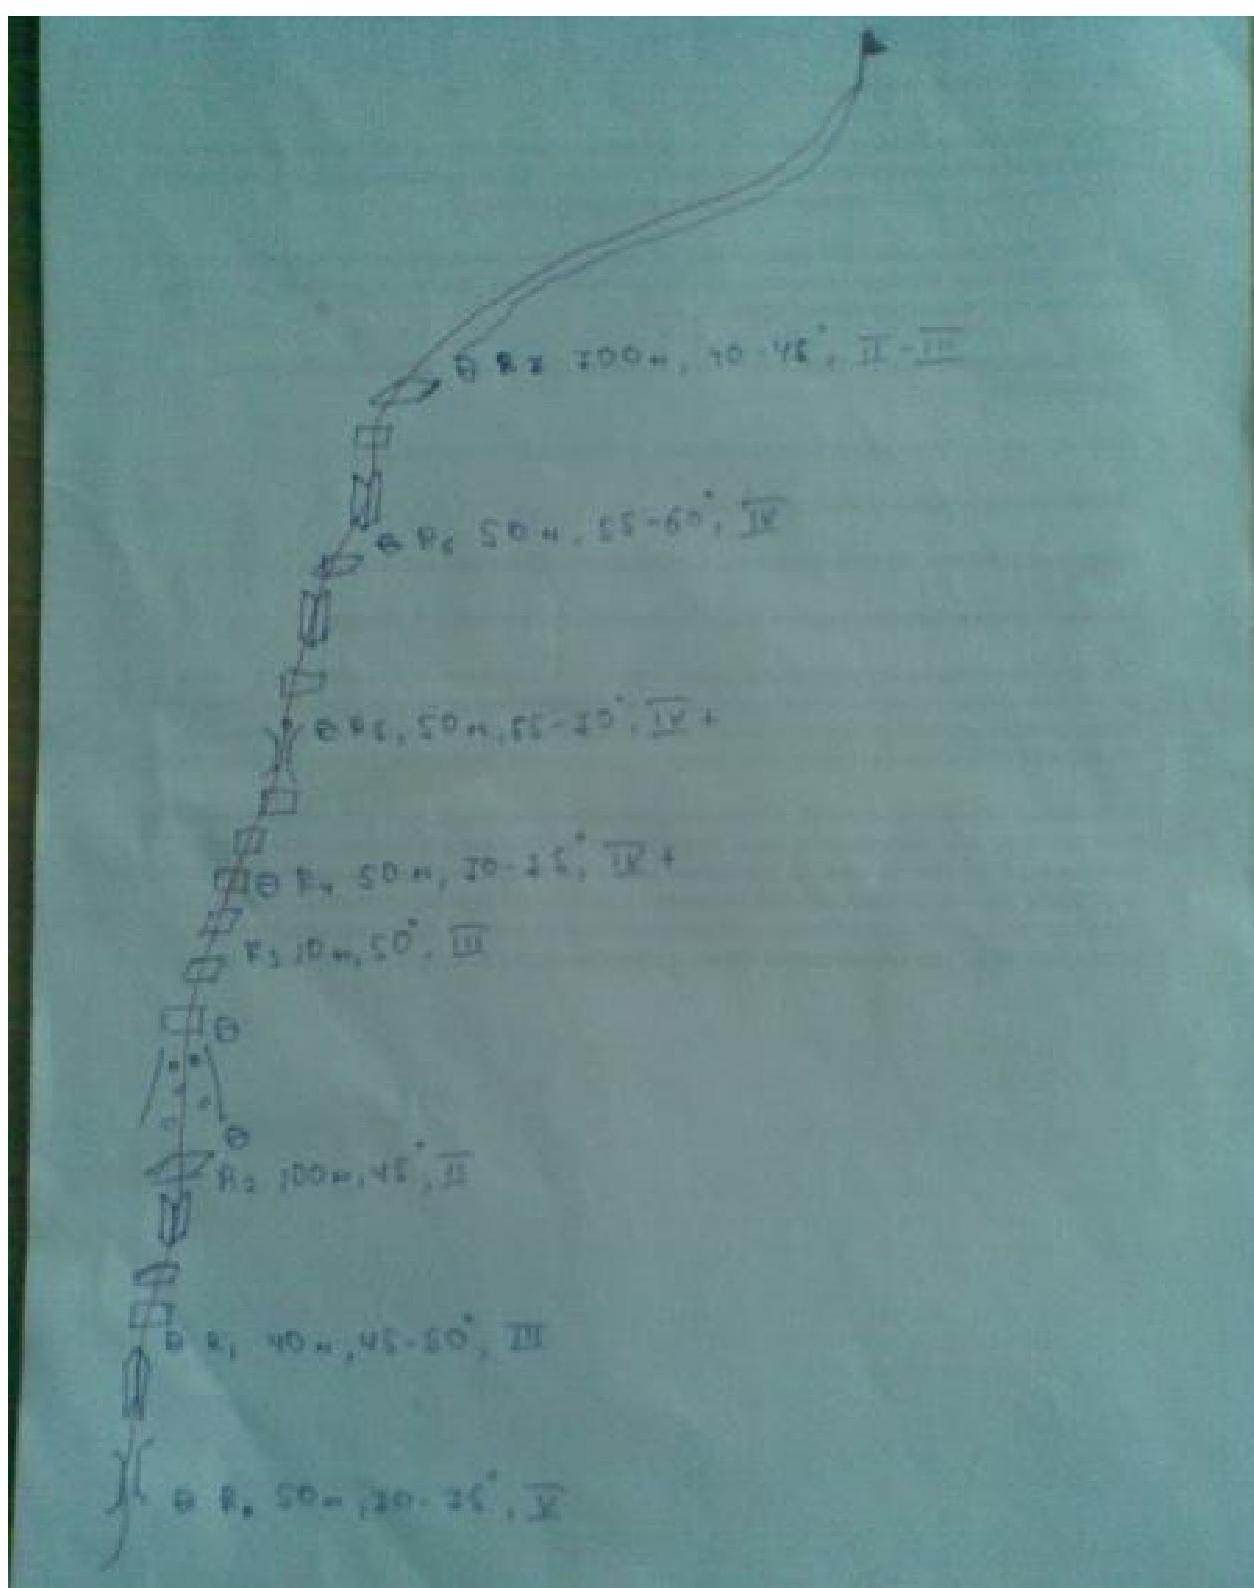 R7 700м, 40-45°, II-III
R6 50м, 55-60°, IV
R5, 50м, 65-70°, IV+
R4 50м, 70-75°, IV+
R3 10м, 50°, III
R2 100м, 45°, II
R1 40м, 45-50°, III
R0 50м, 70-75°, V